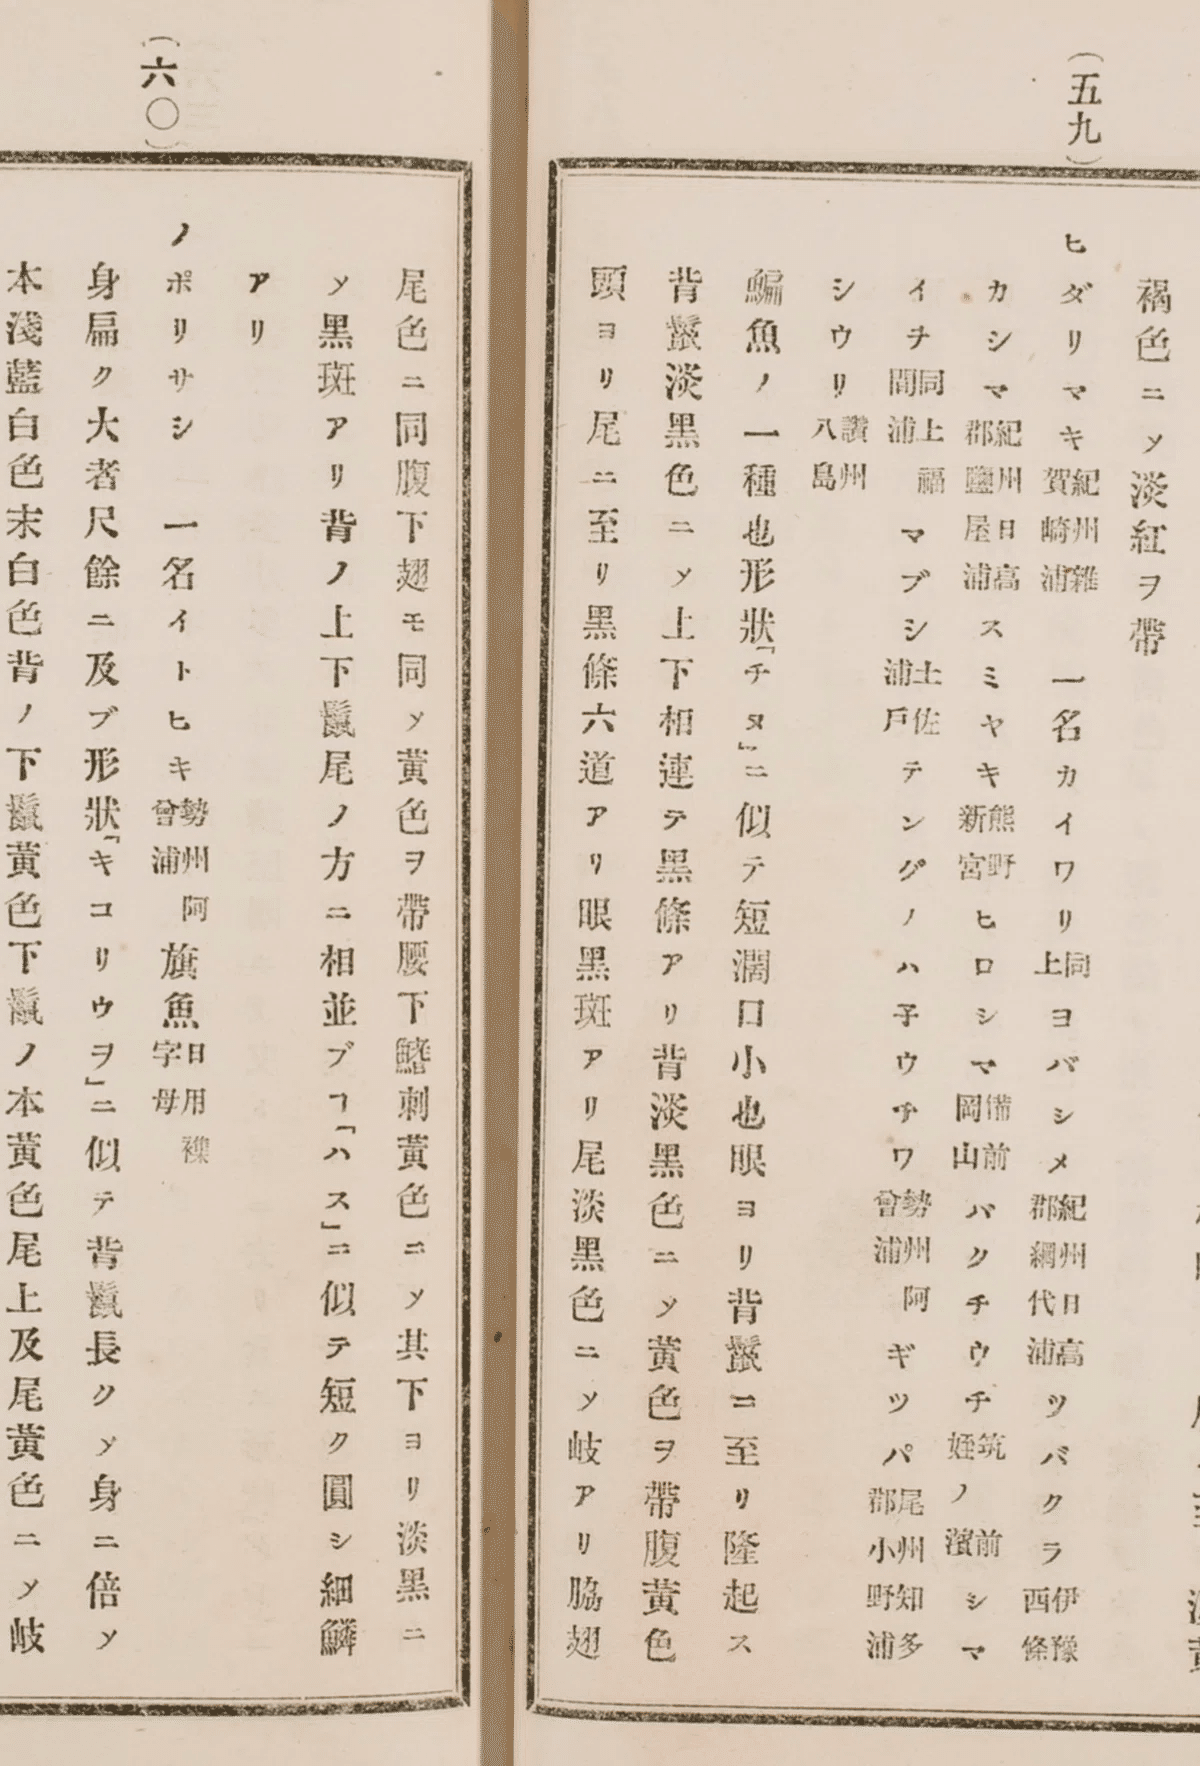 （五九）
褐色ニメ淡紅ヲ帶
ヒダリマキ紀州雜賀崎浦　一名カイワリ同上ヨバシメ紀州日高郡網代浦ツバクラ伊豫西條
カシマ紀州日高郡鹽屋浦スミヤキ熊野新宮ヒロシマ備前岡山バクチウチ筑前姪ノ濱シマ
イチ同上福間浦マブシ土佐浦戸テングノハ子ウチワ勢州阿曾浦ギツパ尾州知多郡小野浦
シウリ讚州八島
鯿魚ノ一種也形狀「チヌ」ニ似テ短濶口小也眼ヨリ背鬣ニ至リ隆起ス
背鬣淡黑色ニメ上下相連テ黑條アリ背淡黑色ニメ黄色ヲ帶腹黄色
頭ヨリ尾ニ至リ黑條六道アリ眼黑斑アリ尾淡黑色ニメ岐アリ脇翅
（六〇）
尾色ニ同腹下翅モ同メ黄色ヲ帶腰下鰭刺黄色ニメ其下ヨリ淡黑ニ
メ黑斑アリ背ノ上下鬣尾ノ方ニ相並ブヿ「ハス」ニ似テ短ク圓シ細鱗
アリ
ノボリサシ　一名イトヒキ勢州阿曾浦旗魚日用襍字母
身扁ク大者尺餘ニ及ブ形狀「キコリウヲ」ニ似テ背鬣長クメ身ニ倍メ
本淺藍白色末白色背ノ下鬣黄色下鬣ノ本黄色尾上及尾黄色ニメ岐